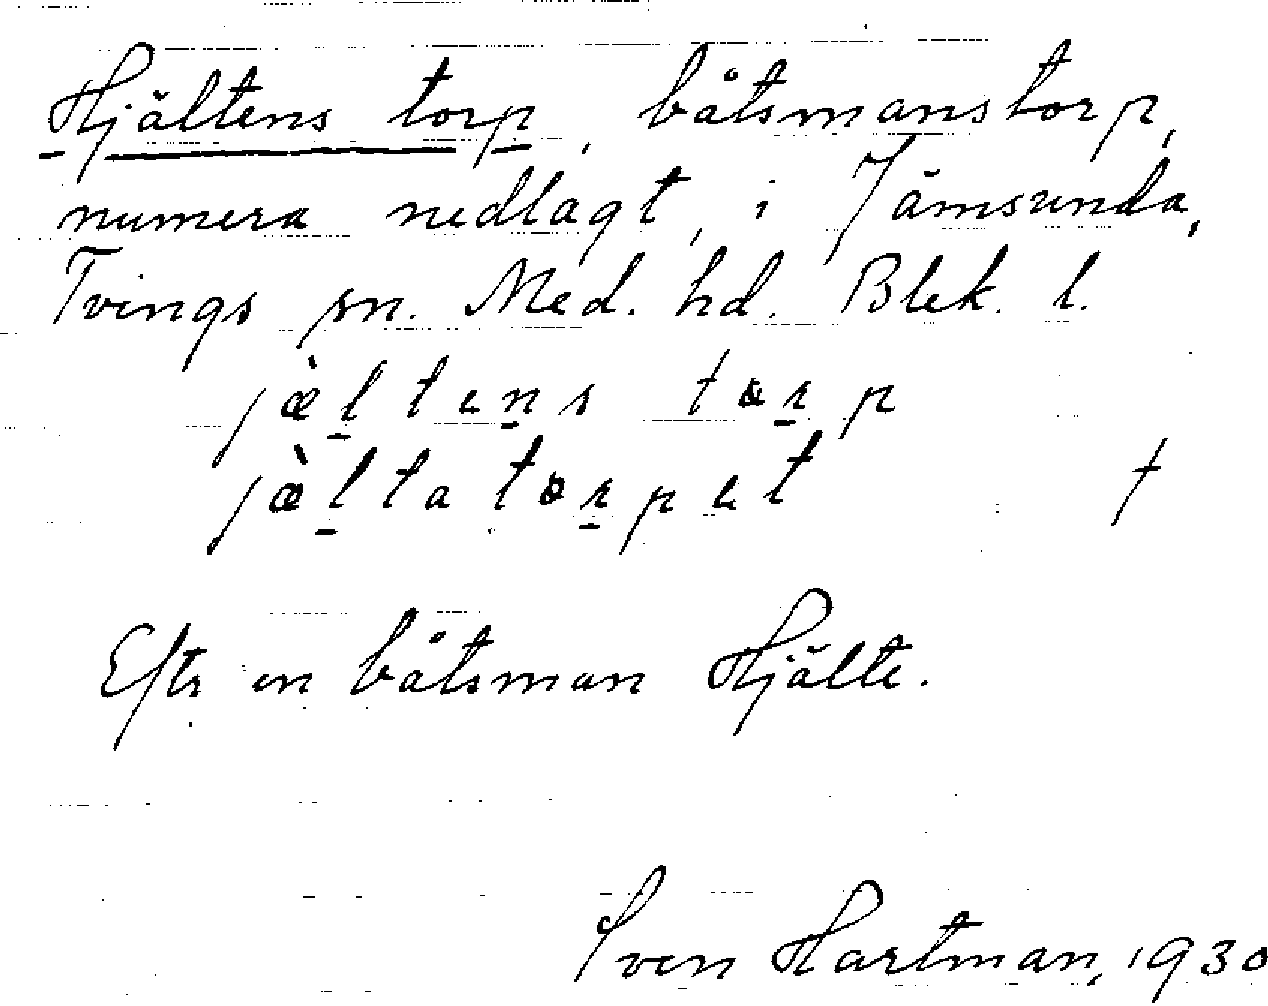 Hjältens torp, båtsmanstorp,
numera nedlagt, i Jämsunda,
Tvings sn. Med. hd. Blek. l.
jæ̀l̠ten̠s tɷr̠p
jæ̀l̠tatɷr̠pet †
Eftr en båtsman Hjälte.
Sven Hartman, 1930